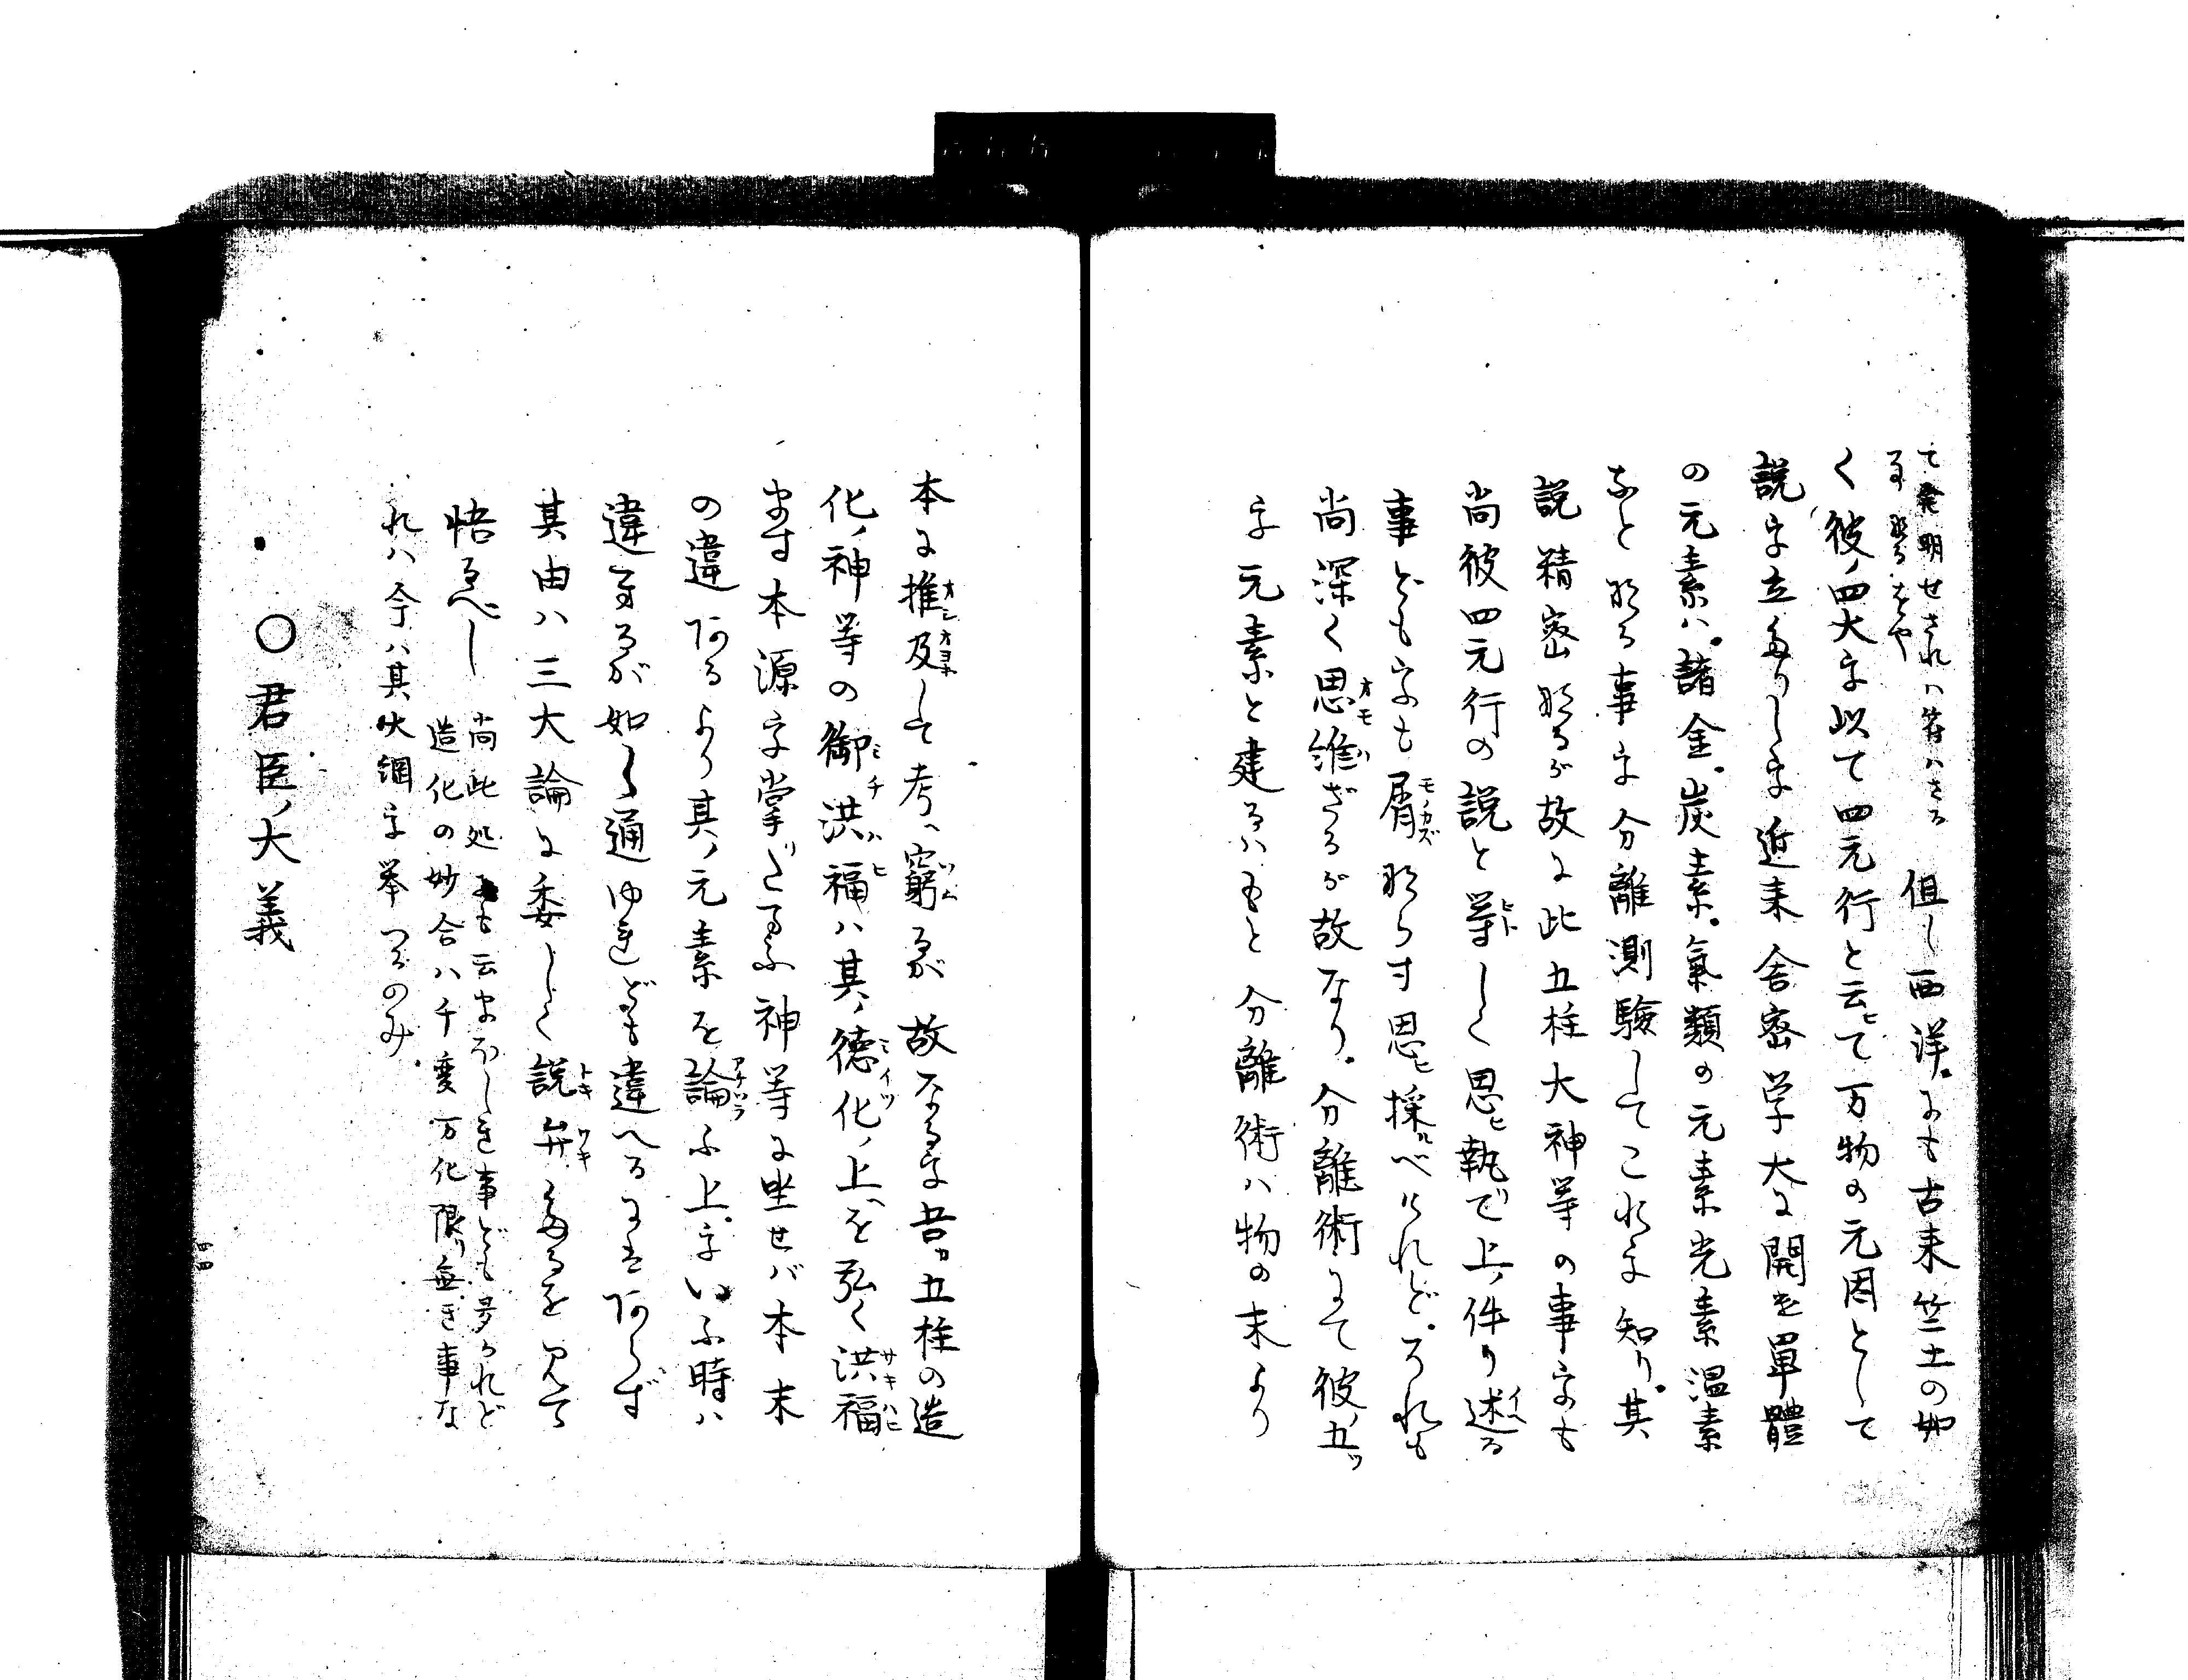 て発明せされハ等ハさる
事なるをや
但し西洋にも古来竺土の如
く彼ノ四大を以て四元行と云ヒて万物の元因として
説を立たりしを近来舎密学大に開き単體
の元素ハ諸金炭素氣類の元素光素温素
なとなる事を分離測験してこれを知り其
説精密なるが故に此五柱大神等の事をも
尚彼四元行の説と等しく思ヒ執で上ノ件り述る
事どもをも屑ならす思ヒ採ルべけれどそれも
尚深く思惟ざるが故なり。分離術にて彼ノ五ツ
を元素と建るハもと分離術ハ物の末より
本に推及して考ヘ窮るが故なるを吾カ五柱の造
化ノ神等の御洪福ハ其ノ徳化ノ上を弘く洪福
ます本源を掌りたまふ神等に坐せバ本末
の違あるより其ノ元素を論ふ上をいふ時ハ
違ヘるが如く通ゆれども違へるにはあらず
其由ハ三大論に委しく説弁たるを見て
悟るべし
尚此処にも云まほしき事ども多かれど
造化の妙合ハ千変万化限り無き事な
れハ今ハ其大綱を挙つるのみ
〇君臣ノ大義